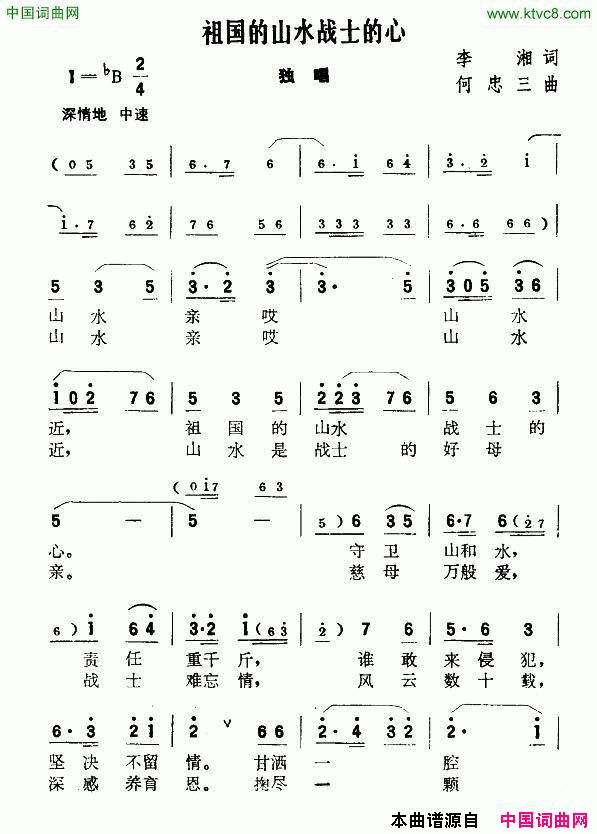 中国词曲网
www.ktvc8.com
祖国的山水战士的心
1=♭B 2/4
独唱
李湘词
何忠三曲
深情地 中速
(0 5 3 5 | 6·7 6 | 6·i 6 4 | 3·2 i |
i·7 6 2 | 7 6 5 6 | 3 3 3 3 3 | 6·6 6 6 6) |
5 3 5 | 3·2 3 | 3· 5 | 3 0 5 3 6 |
山水 亲哎 山水
山水 亲哎 山水
i 0 2 7 6 | 5 3 5 | 2 2 3 7 6 | 5 6 3 |
近, 祖国的山水 战士的
近, 山水是战士的好母
(0 i 7 6 3
5 — | 5 — | 5) 6 3 5 | 6·7 6 (2 7 |
心。 守卫 山和水,
亲。 慈母 万般爱,
6) i 6 4 | 3·2 i (6 3 | 2) 7 6 | 5·6 3 |
责任 重千斤, 谁敢来侵犯,
战士 难忘情, 风云数十载,
6·3 2 i | 2 ∨ 6 6 | 2·4 3 2 | 2· i |
坚决不留情。甘洒一腔
深感养育恩。掬尽一颗
本曲谱源自 中国词曲网